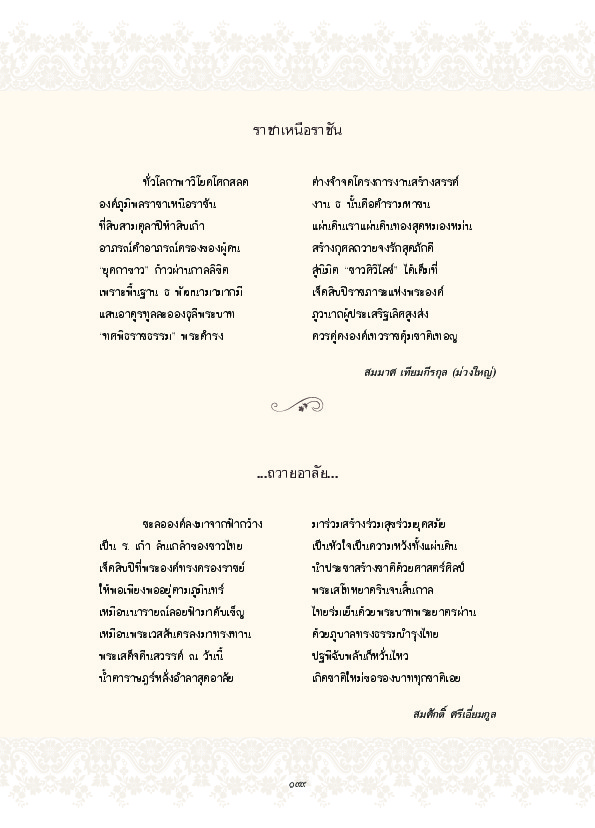 ราชาเหนือราชัน
ทั่วโลกาพาวิโยคโศกสลด ต่างจำจดโครงการงานสร้างสรรค์
องค์ภูมิพลราชาเหนือราชัน งาน ธ นั้นคือตำรามหาชน
ที่สิบสามตุลาปีห้าสิบเก้า แผ่นดินเราแผ่นดินทองสุดหมองหม่น
อาภรณ์ดำอาภรณ์ครองของผู้คน สร้างกุศลถวายจงรักสุดภักดี
“ยุคกาขาว” ก้าวผ่านกาลลิขิต สู่นิมิต “ชาวศิวิไลซ์” ได้เต็มที่
เพราะพื้นฐาน ธ พัฒนามามากมี เจ็ดสิบปีราชภาระแห่งพระองค์
แสนอาดูรทูลละอองธุลีพระบาท ภูวนาถผู้ประเสริฐเลิศสูงส่ง
“ทศพิธราชธรรม” พระดำรง ควรคู่คงองค์เทวราชคุ้มชาติเทอญ
สมมาศ เทียมกีรกุล (ม่วงใหญ่)
...ถวายอาลัย...
ชะลอองค์ลงมาจากฟ้ากว้าง มาร่วมสร้างร่วมสุขร่วมยุคสมัย
เป็น ร. เก้า ล้นเกล้าของชาวไทย เป็นหัวใจเป็นความหวังทั้งแผ่นดิน
เจ็ดสิบปีที่พระองค์ทรงครองราชย์ นำประชาสร้างชาติด้วยศาสตร์ศิลป์
ให้พอเพียงพออยู่ตามภูมินทร์ พระเสโทหยาดรินจนสิ้นกาล
เหมือนนารายณ์ลอยฟ้ามาดับเข็ญ ไทยร่มเย็นด้วยพระบาทพระยาตรผ่าน
เหมือนพระเวสสันดรลงมาทรงทาน ด้วยภูบาลทรงธรรมบำรุงไทย
พระเสด็จคืนสวรรค์ ณ วันนี้ ปฐพีฉับพลันก็หวั่นไหว
น้ำตาราษฎร์หลั่งอำลาสุดอาลัย เกิดชาติใหม่ขอรองบาททุกชาติเอย
สมศักดิ์ ศรีเอี่ยมกูล